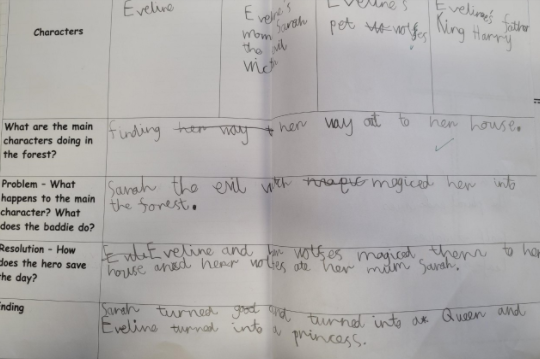 Characters
Eveline
Eveline's
mom Sarah
the evil
Eveline's
pet wolfses
Eveline's father
King Harry
What are the main
characters doing in
the forest?
finding her way her way out to her house.
Problem - What
happens to the main
character? What
does the baddie do?
Sarah the evil magiced her into
the forest.
Resolution - How
does the hero save
the day?
Eveline and her wolfses magiced them to her
house and her wolfses ate her mum Sarah.
nding
Sarah turned good and turned into a Queen and
Eveline turned into a princess.